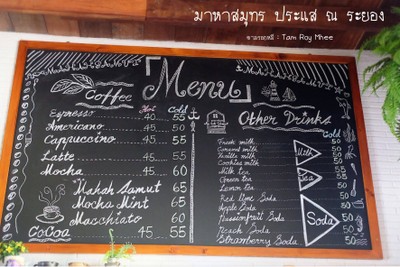 มาหาสมุทร ประแส ณ ระยอง
: Tam Roy Mhee
Menu
Coffee Hot Cold
Espresso 40 55
Americano 50
Cappuccino 45 55
Latte 45 55
Mocha 45 55
Mahah Samut 65
Mocha Mint 65
Macchiato 60
CoCoa 45 55
Other Drinks
Cold
Fresh milk
Caramel milk
Vanilla milk
Cookies milk
Milk
Milk tea
Green tea
Lemon tea
Tea
Red lime Soda
Apple Soda
Passionfruit Soda
Peach Soda
Strawberry Soda 50
Soda